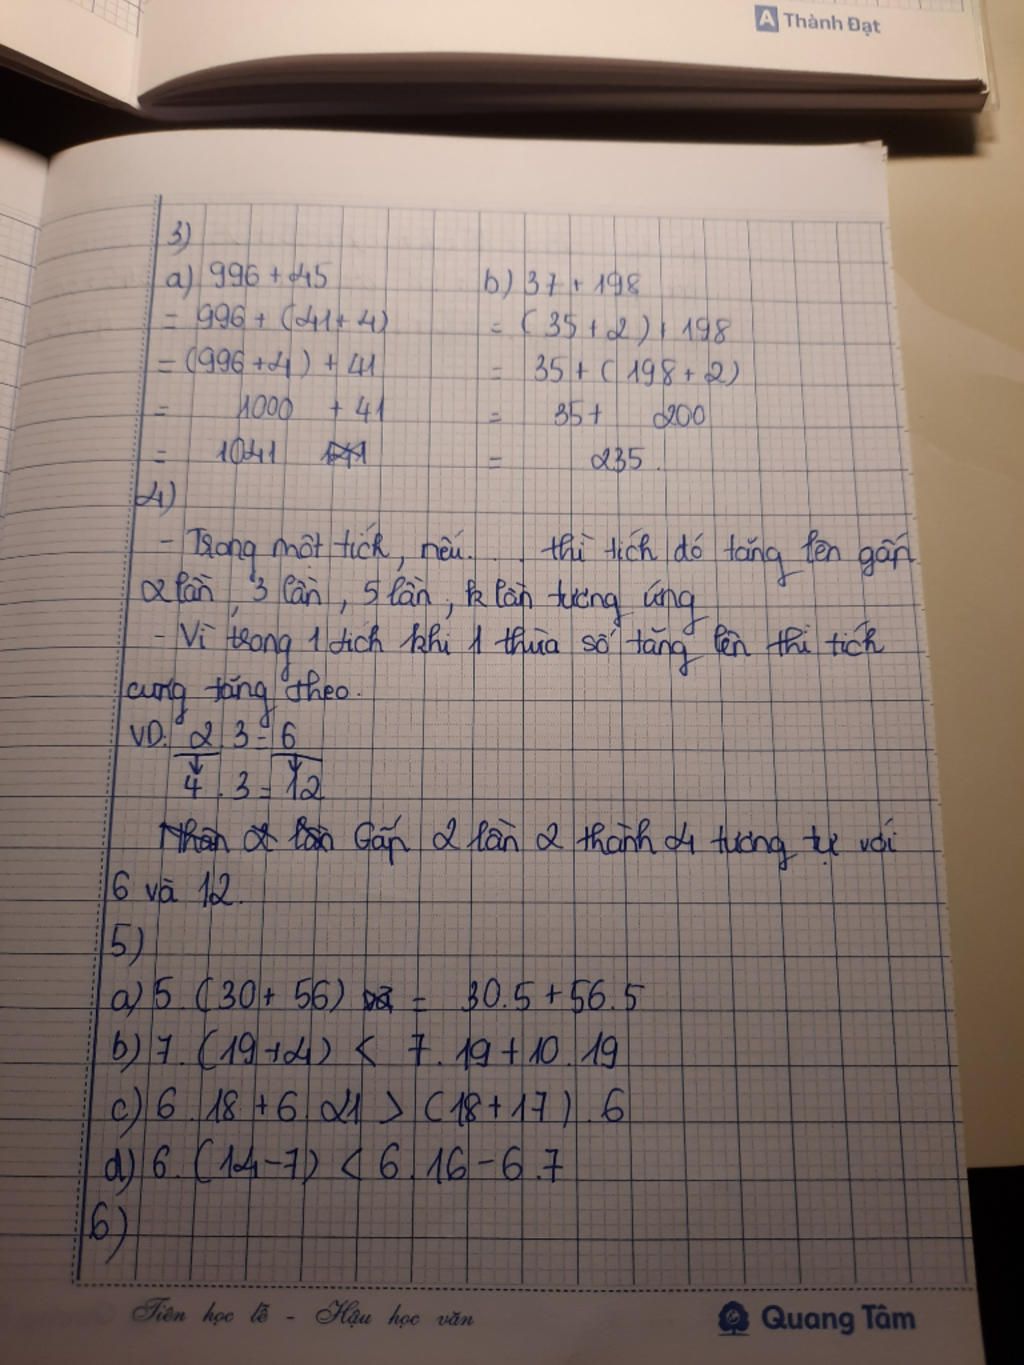 A Thành Đạt
3)
a) 996 + 45 b) 37 + 198
= 996 + (41 + 4) = (35 + 2) + 198
= (996 + 4) + 41 = 35 + (198 + 2)
= 1000 + 41 = 35 + 200
= 1041 = 235.
4)
- Trong một tích, nếu. . . thì tích đó tăng lên gấp
2 lần, 3 lần, 5 lần, k lần tương ứng
- Vì trong 1 tích khi 1 thừa số tăng lên thì tích
cũng tăng theo.
VD: 2 . 3 = 6
4 . 3 = 12
Gấp 2 lần 2 thành 4 tương tự với
6 và 12.
5)
a) 5 . (30 + 56) = 30.5 + 56.5
b) 7. (19 + 4) < 7 . 19 + 10 . 19
c) 6 . 18 + 6 . 21 > (18 + 17) . 6
d) 6. (14 - 7) < 6 . 16 - 6 . 7
6)
Tiên học lễ - Hậu học văn Quang Tâm